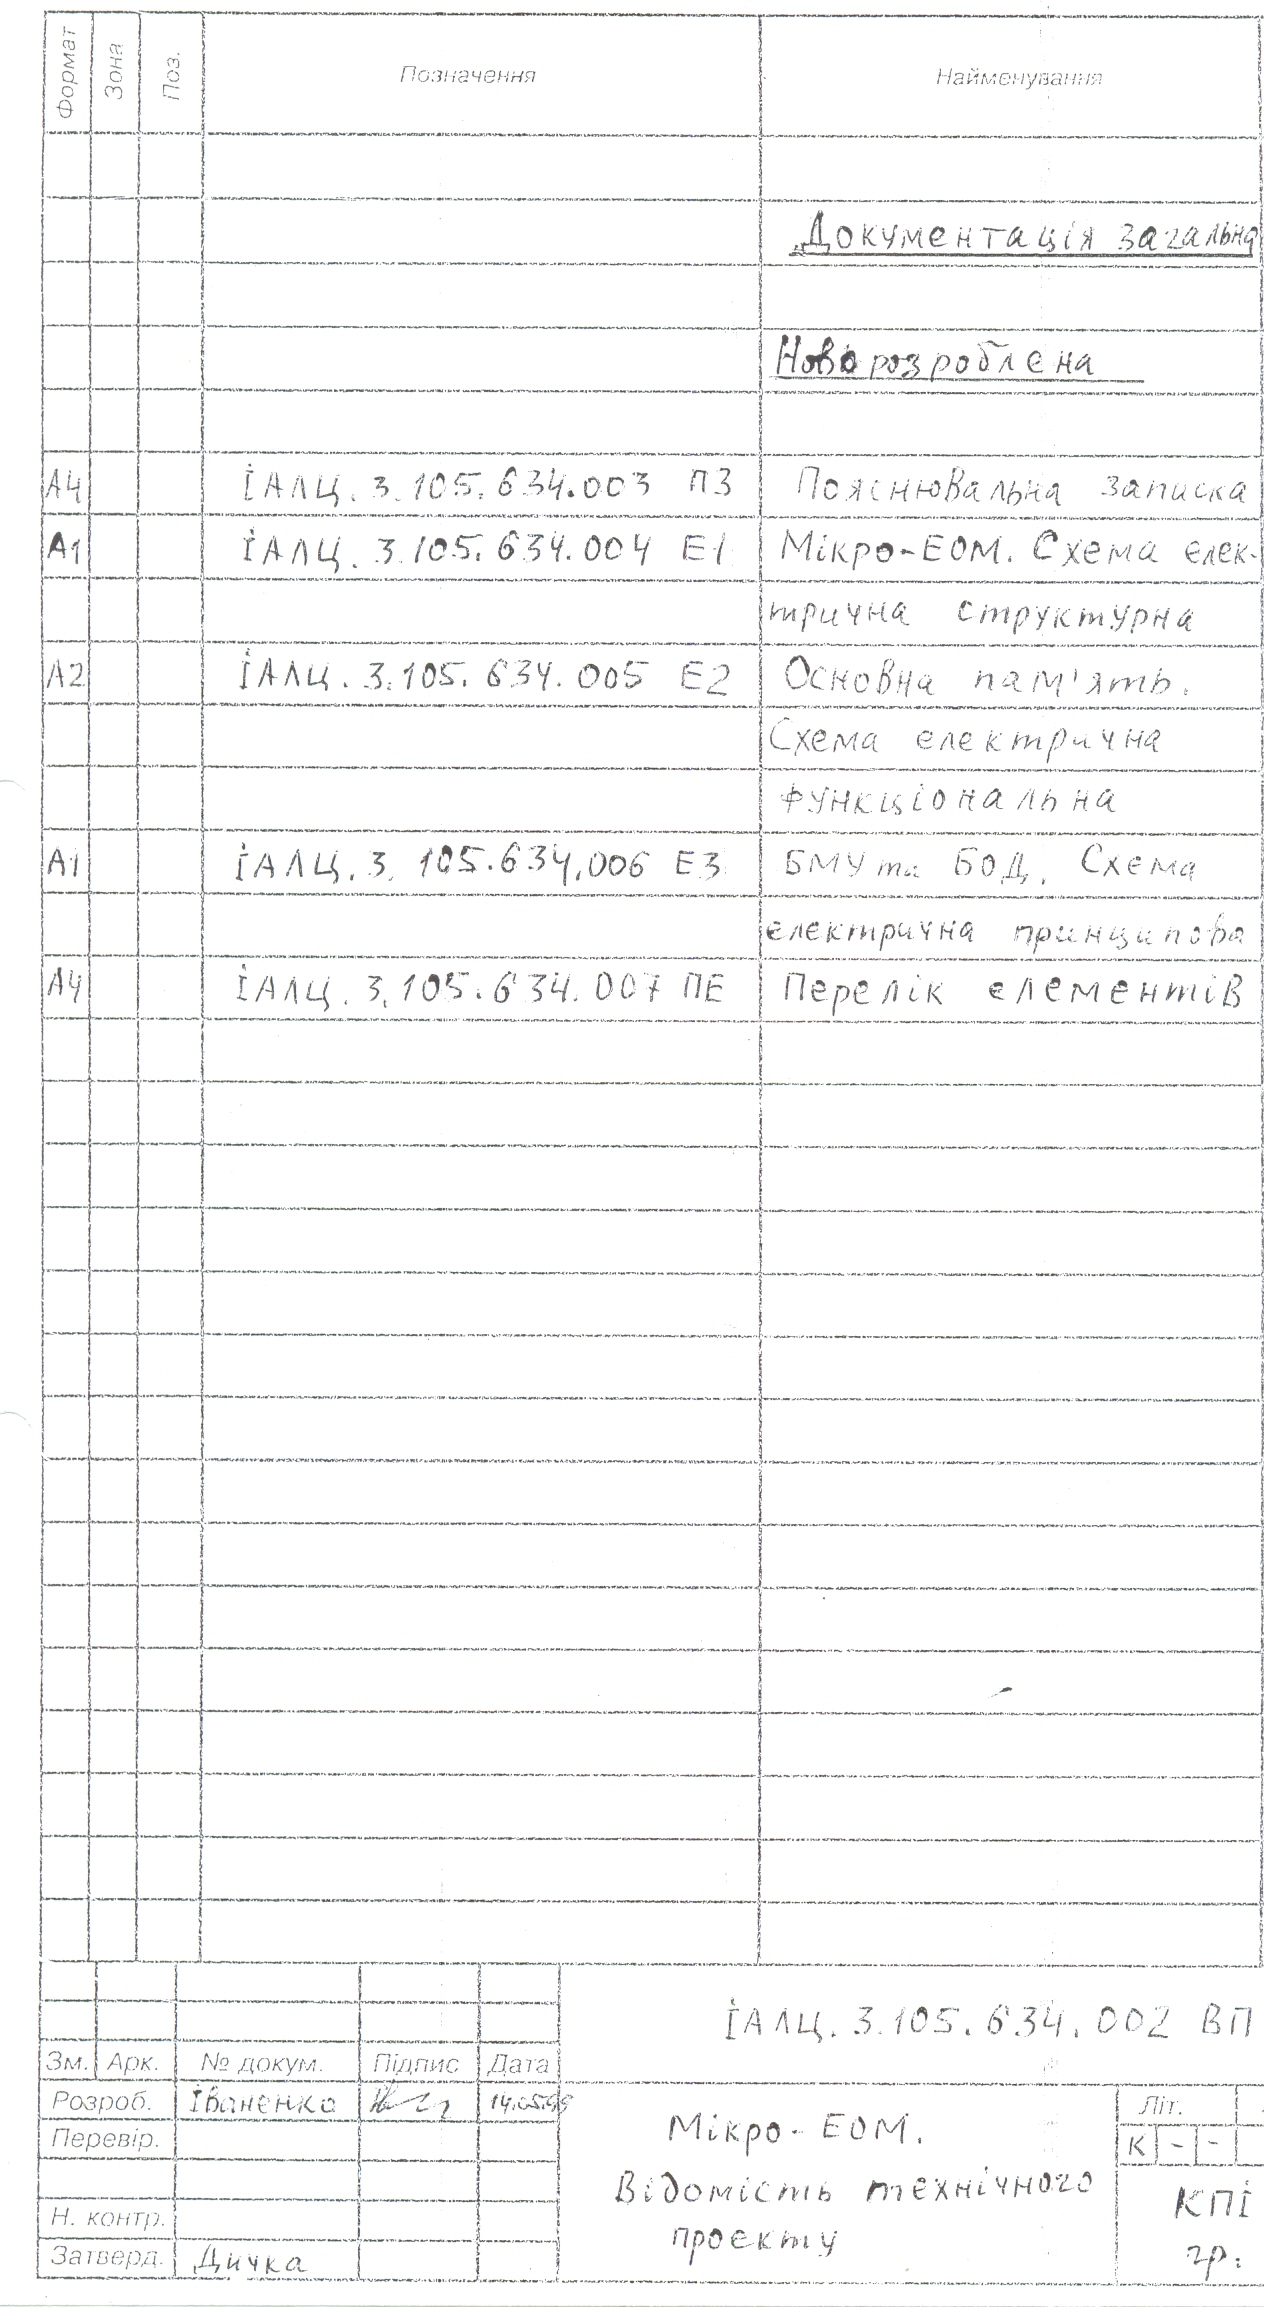 Формат Зона Поз. Позначення Найменування
Документація загальна
Новорозроблена
А4 ІАЛЦ.3.105.634.003 ПЗ Пояснювальна записка
А1 ІАЛЦ.3.105.634.004 Е1 Мікро-ЕОМ. Схема елек-
трична структурна
А2 ІАЛЦ.3.105.634.005 Е2 Основна пам'ять.
Схема електрична
функціональна
А1 ІАЛЦ.3.105.634.006 Е3 БМУ та БОД. Схема
електрична принципова
А4 ІАЛЦ.3.105.634.007 ПЕ Перелік елементів
ІАЛЦ.3.105.634.002 ВП
Зм. Арк. № докум. Підпис Дата
Розроб. Іваненко 14.05.99
Перевір.
Н. контр.
Затверд. Дичка
Мікро-ЕОМ.
Відомість технічного
проєкту
Літ.
К - -
КПІ
гр.